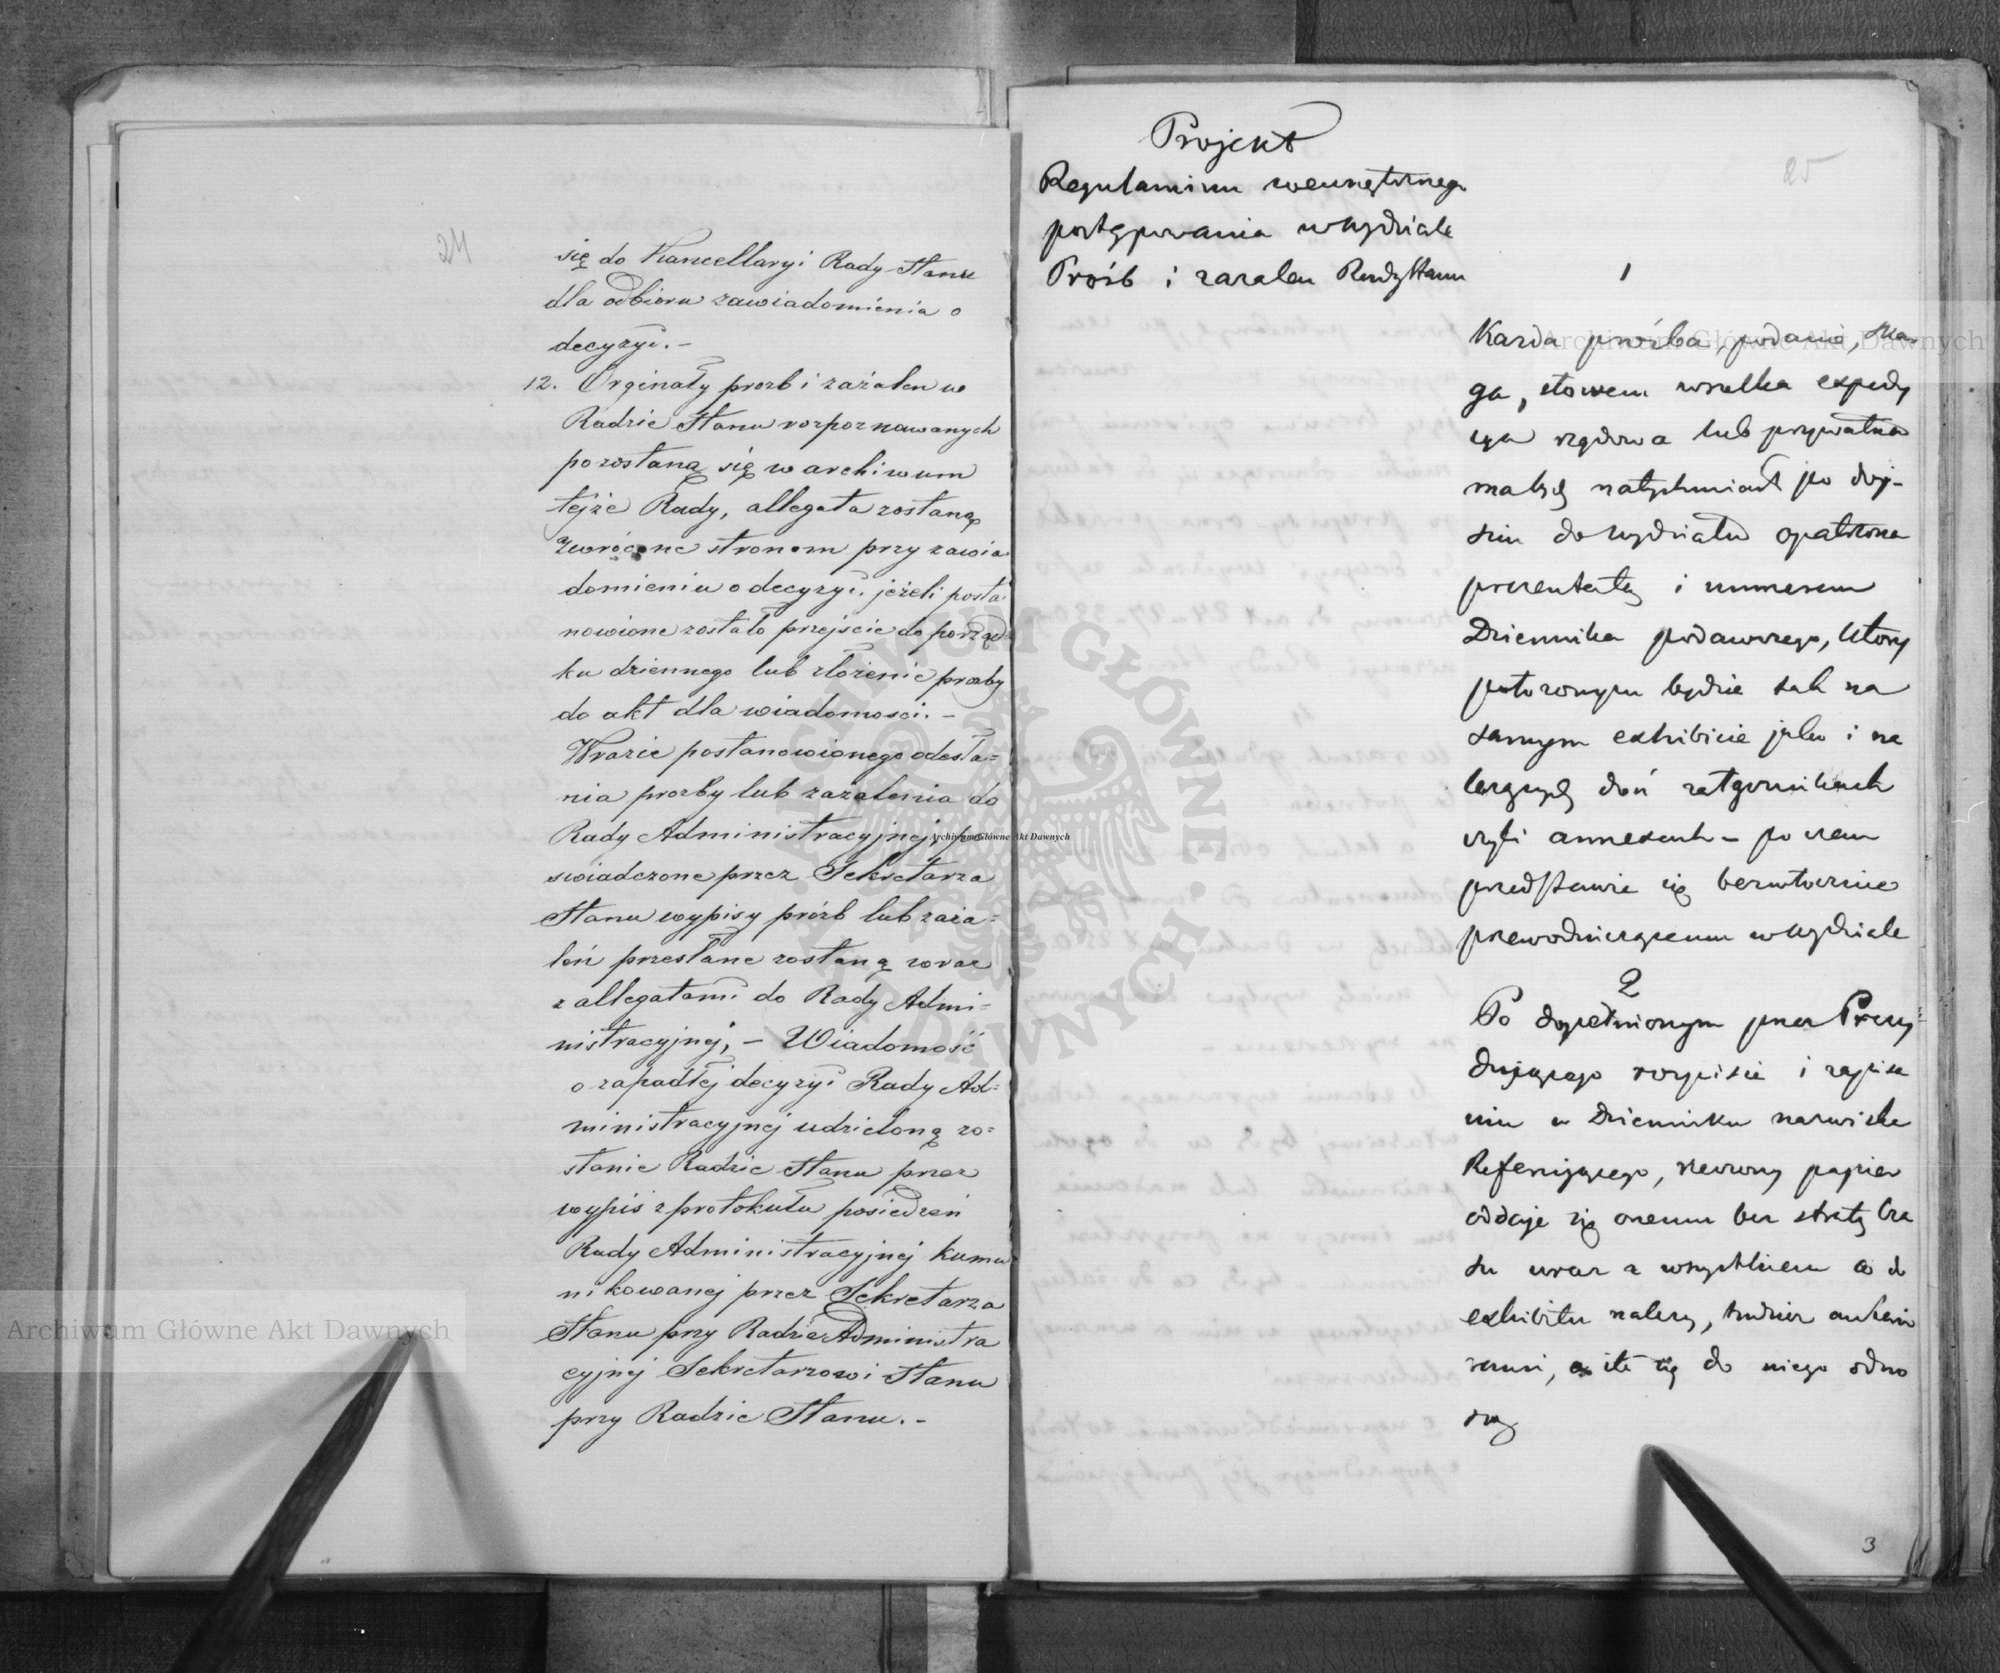 24
się do Kancellaryi Rady Stanu
dla odbioru zawiadomienia o
decyzyi. –
12. Orginały prozb i zażaleń w
Radzie Stanu rozpoznawanych
pozostaną się w archiwum
tejże Rady, allegata zostaną
zwrócone stronom przy zawia
domieniu o decyzyi. jeżeli posta-
nowione zostało przejscie do porząd-
ku dziennego lub złożenie prozby
do akt dla wiadomosci. –
Wrazie postanowionego odesła-
nia prozby lub zażalenia do
Rady Administracyjnej, po
swiadczone przez Sekretarza
Stanu wypisy prózb lub zaża-
leń przesłane zostaną wraz
z allegatami do Rady Admi-
nistracyjnej, – Wiadomość
o zapadłej decyzyi Rady Ad-
ministracyjnej udzieloną zo-
stanie Radzie Stanu przez
wypis z protokułu posiedzeń
Rady Administracyjnej komu
nikowanej przez Sekretarza
Stanu przy Radzie Administra
cyjnej Sekretarzowi Stanu
przy Radzie Stanu. –
25
Projekt
Regulaminu wewnętrznego
postępowania w Wydziale
Próśb i zazaleń Rady Stanu
1
Kazda prośba, podanie, skar-
ga, słowem wszelka expedy
cya rządowa lub prywatna
ma być natychmiast po doj-
sciu do wydziału opatrzona
prezentatą i numerem
Dziennika podawczego, który
położonym będzie tak na
samym exhibicie jako i na
łączących doń załącznikach
czyli annexach – po czem
przedstawia się bezzwłocznie
przewodniczącemu w Wydziale
2
Po dopełnionym przez Prezy-
dującego rozpisie i zapisa
niu w Dzienniku nazwiska
Referującego, rzeczony papier
oddaje się onemu bez straty cza
su wraz z wszystkiem co do
exhibitu nalezy, tudzież
, o ile się do niego odno
szą
3
Archiwum Główne Akt Dawnych
Archiwum Główne Akt Dawnych
Archiwum Główne Akt Dawnych
ARCHIWUM GŁÓWNE AKT DAWNYCH